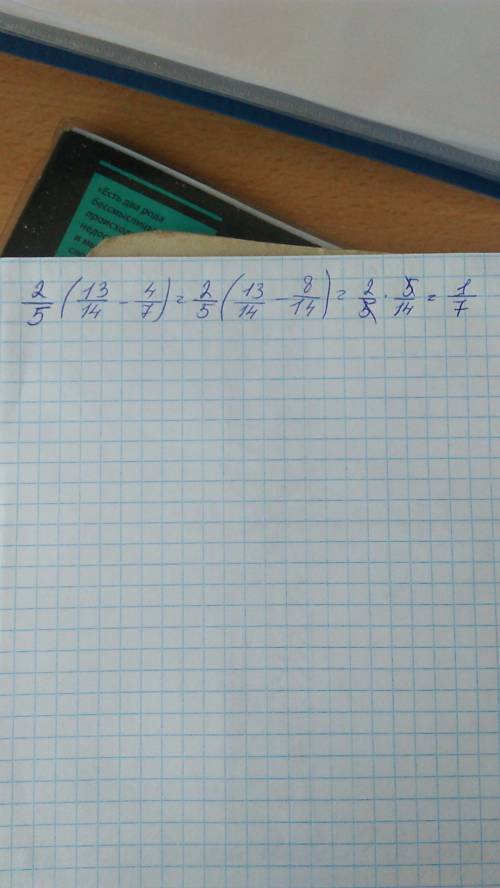 «Есть два рода
бессмыслицы
происход
недос
и мн
2/5 (13/14 - 4/7) = 2/5 (13/14 - 8/14) = 2/5 · 5/14 = 1/7